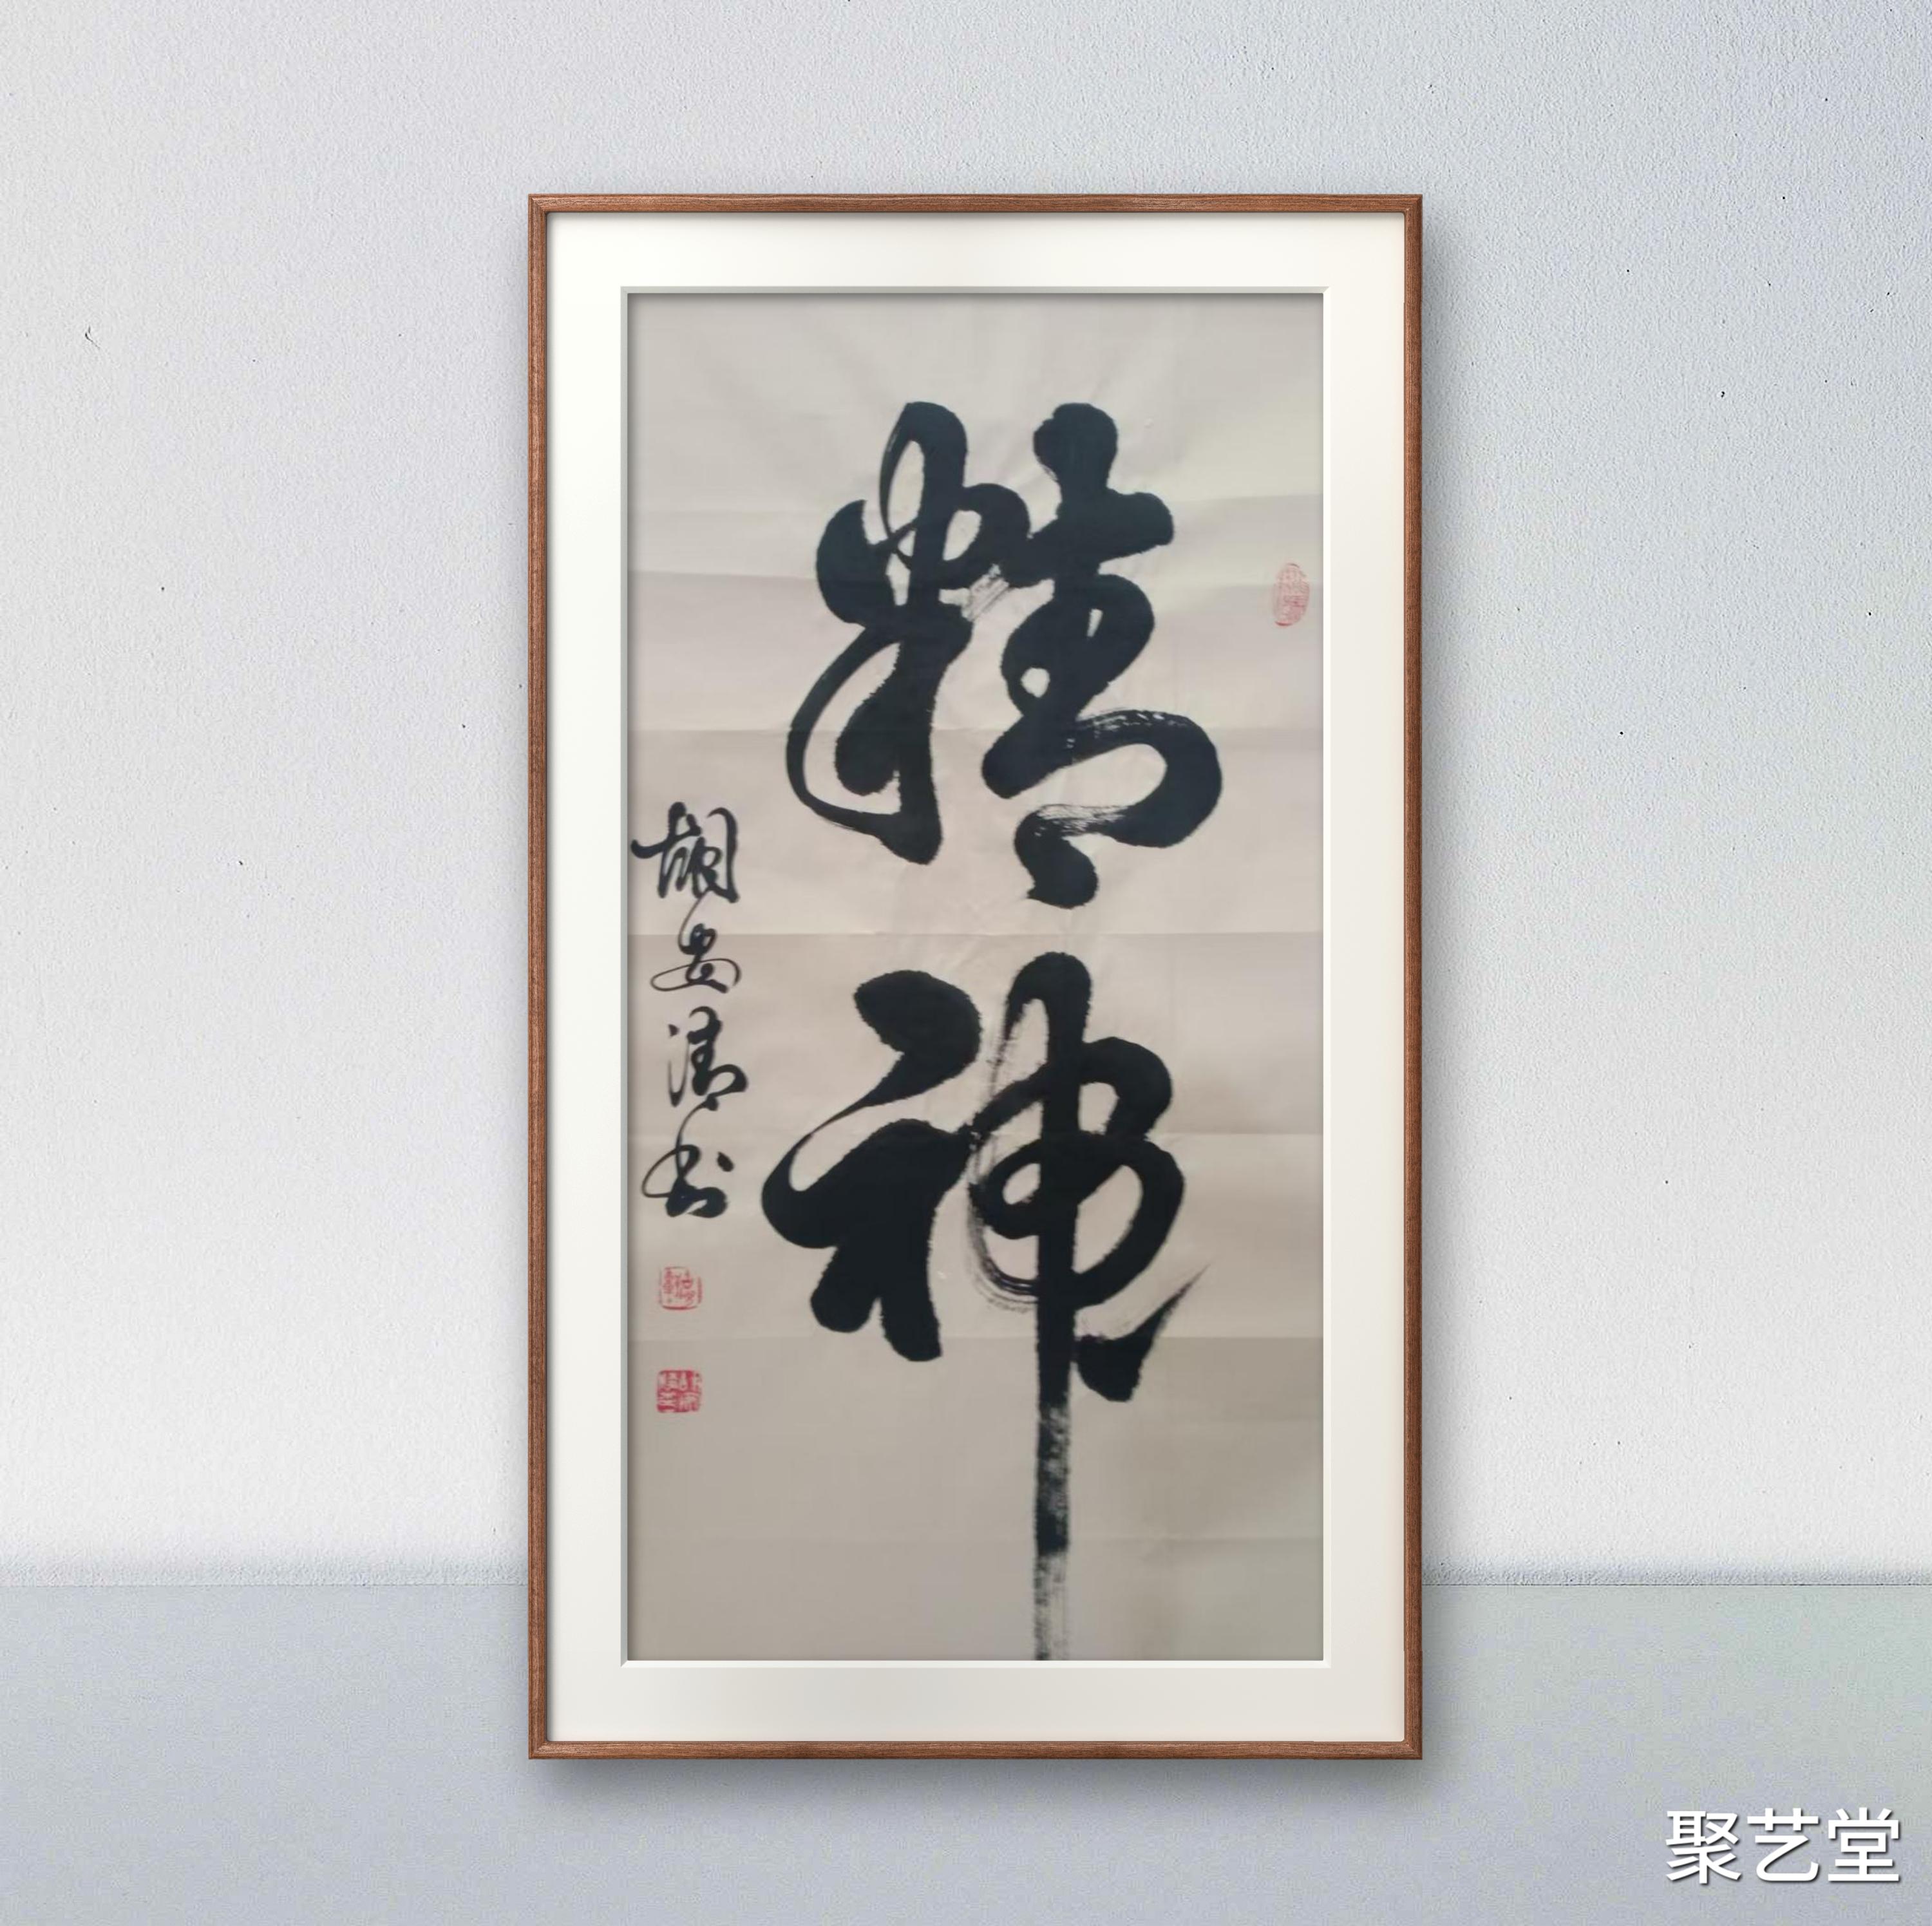 精神
胡安清书
聚艺堂